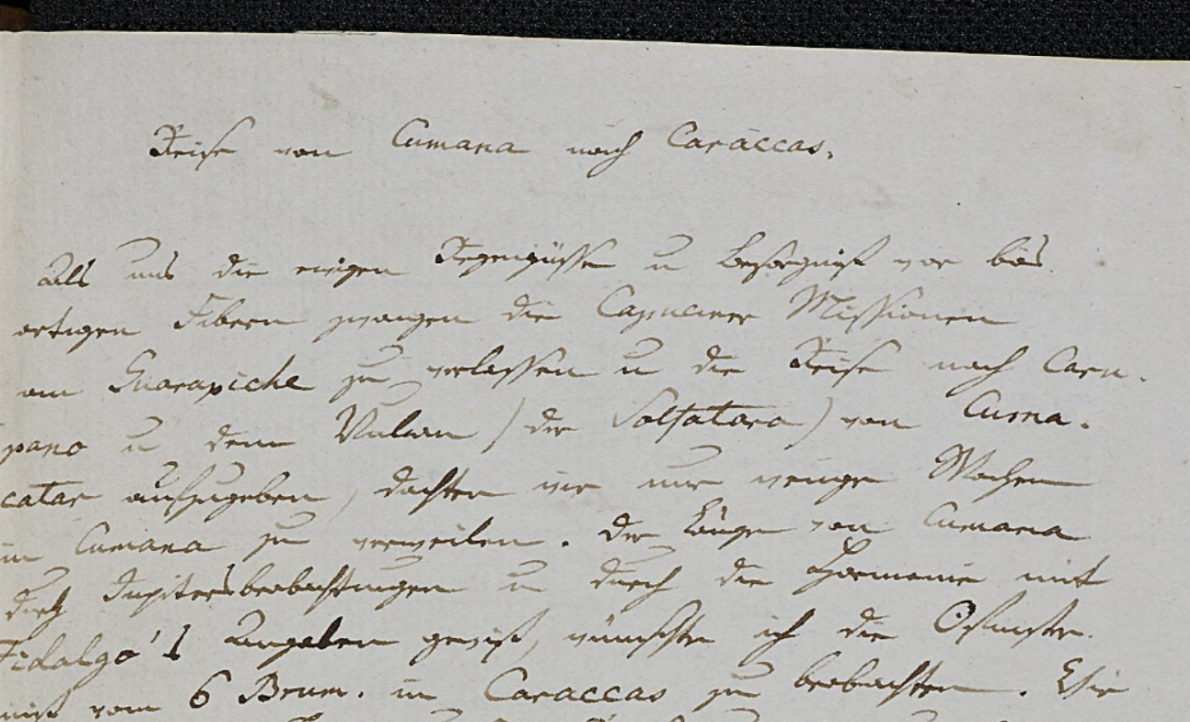 Reise von Cumana nach Caràccas.
Als uns die ewigen Regengüsse u Besorgniß vor bös
artigen Fibern zwangen die Capuciner Missionen
am Guarapiche zu verlassen u die Reise nach Caru-
pano u dem Vulcan (der Solfatara) von Cuma-
catar aufzugeben, dachten wir nur wenige Wochen
in Cumana zu verweilen. Der Länge von Cumana
durch Jupitersbeobachtungen u durch die Harmonie mit
Fidalgo's Angaben gewiß, wünschte ich die Ofinster-
niß vom 6 Brum. in Caraccas zu beobachten. Wir